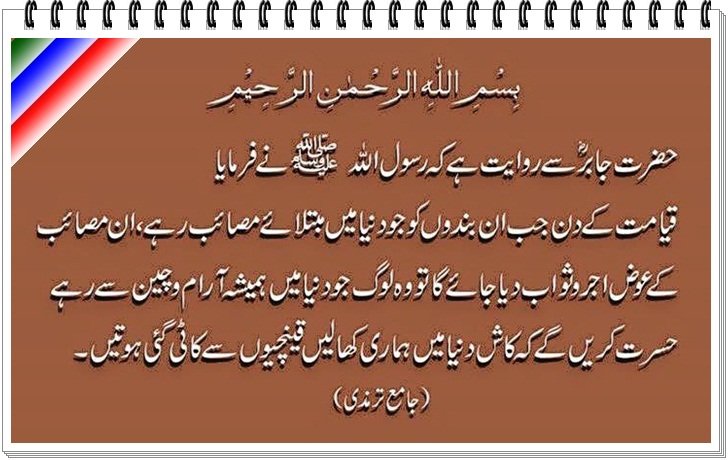 بِسْمِ اللهِ الرَّحْمٰنِ الرَّحِيْمِ
حضرت جابرؓ سے روایت ہے کہ رسول اللہ ﷺ نے فرمایا
قیامت کے دن جب ان بندوں کو جو دنیا میں مبتلائے مصائب رہے، ان مصائب
کے عوض اجر و ثواب دیا جائے گا تو وہ لوگ جو دنیا میں ہمیشہ آرام و چین سے رہے
حسرت کریں گے کہ کاش دنیا میں ہماری کھالیں قینچیوں سے کاٹی گئی ہوتیں۔
(جامع ترمذی)